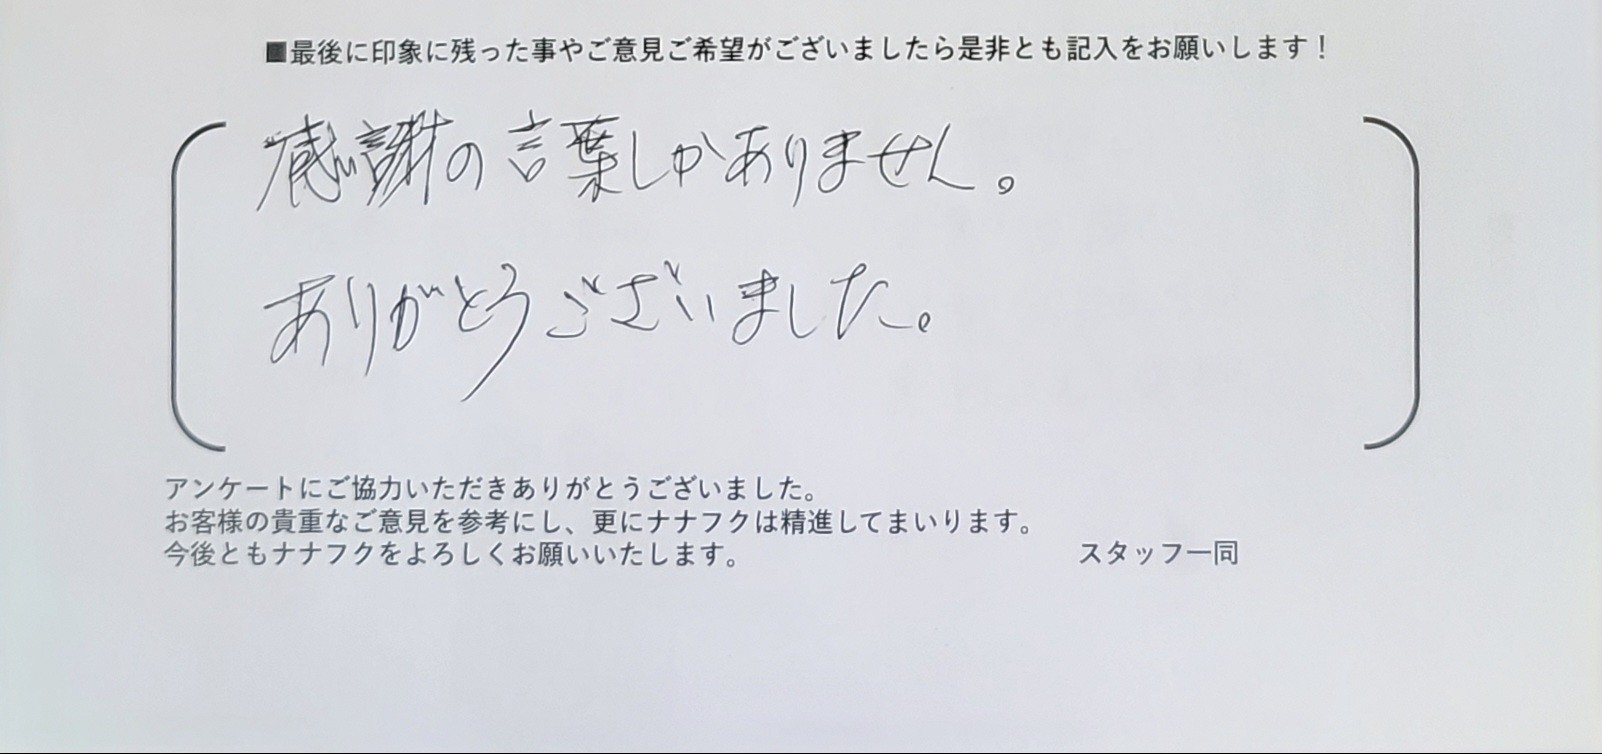 ■最後に印象に残った事やご意見ご希望がございましたら是非とも記入をお願いします！
感謝の言葉しかありません。
ありがとうございました。
アンケートにご協力いただきありがとうございました。
お客様の貴重なご意見を参考にし、更にナナフクは精進してまいります。
今後ともナナフクをよろしくお願いいたします。 スタッフ一同